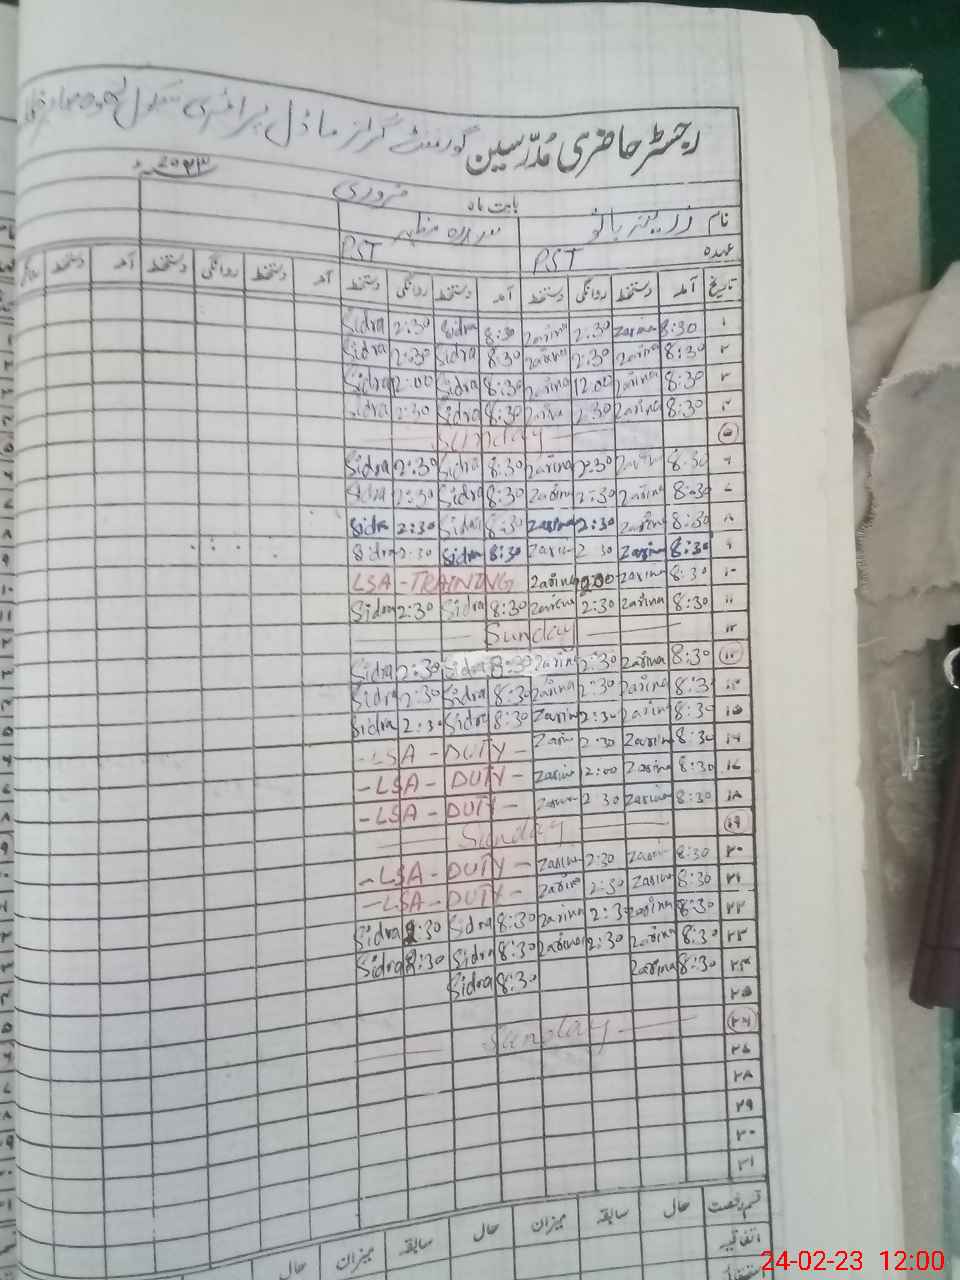 رجسٹر حاضری مُدرّسین گورنمنٹ گرلز ماڈل پرائمری سکول
بابت ماہ فروری ۲۰۲۳ء
نام زرینہ بانو سدرہ مظہر
عہدہ PST PST
تاریخ آمد دستخط روانگی دستخط آمد دستخط روانگی دستخط آمد دستخط روانگی دستخط آمد دستخط روانگی
۱ 8:30 Zarina 2:30 Zarina 8:30 Sidra 2:30 Sidra
۲ 8:30 Zarina 2:30 Zarina 8:30 Sidra 2:30 Sidra
۳ 8:30 Zarina 12:00 Zarina 8:30 Sidra 12:00 Sidra
۴ 8:30 Zarina 2:30 Zarina 8:30 Sidra 2:30 Sidra
۵ Sunday
۶ 8:30 Zarina 2:30 Zarina 8:30 Sidra 2:30 Sidra
۷ 8:30 Zarina 2:30 Zarina 8:30 Sidra 2:30 Sidra
۸ 8:30 Zarina 2:30 Zarina 8:30 Sidra 2:30 Sidra
۹ 8:30 Zarina 2:30 Zarina 8:30 Sidra 2:30 Sidra
۱۰ 8:30 Zarina Zarina LSA - TRAINING
۱۱ 8:30 Zarina 2:30 Zarina 8:30 Sidra 2:30 Sidra
۱۲ Sunday
۱۳ 8:30 Zarina 2:30 Zarina 8:30 Sidra 2:30 Sidra
۱۴ 8:30 Zarina 2:30 Zarina 8:30 Sidra 2:30 Sidra
۱۵ 8:30 Zarina 2:30 Zarina 8:30 Sidra 2:30 Sidra
۱۶ 8:30 Zarina 2:30 Zarina - LSA - DUTY -
۱۷ 8:30 Zarina 2:00 Zarina - LSA - DUTY -
۱۸ 8:30 Zarina 2:30 Zarina - LSA - DUTY -
۱۹ Sunday
۲۰ 8:30 Zarina 2:30 Zarina - LSA - DUTY -
۲۱ 8:30 Zarina 2:30 Zarina - LSA - DUTY -
۲۲ 8:30 Zarina 2:30 Zarina 8:30 Sidra 2:30 Sidra
۲۳ 8:30 Zarina 2:30 Zarina 8:30 Sidra 2:30 Sidra
۲۴ 8:30 Zarina 8:30 Sidra
۲۵
۲۶ Sunday
۲۷
۲۸
۲۹
۳۰
۳۱
قسم رخصت حال سابقہ میزان حال سابقہ میزان حال
اتفاقیہ
24-02-23 12:00